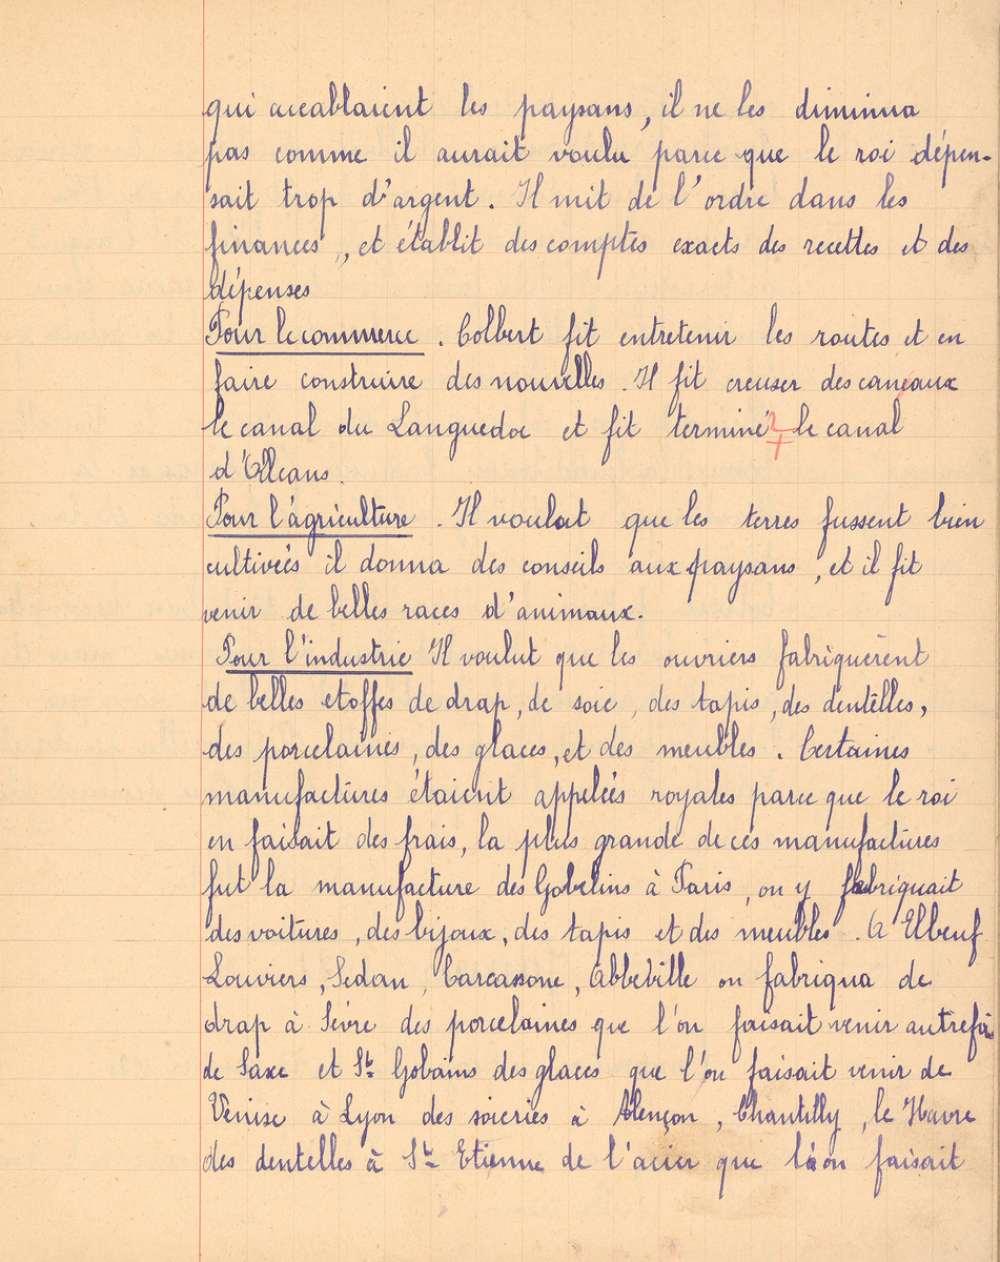 qui accablaient les paysans, il ne les diminua
pas comme il aurait voulu parce que le roi dépen-
sait trop d'argent. Il mit de l'ordre dans les
finances, et établit des comptes exacts des recettes et des
dépenses
Pour le commerce. Colbert fit entretenir les routes et en
faire construire des nouvelles. Il fit creuser des caneaux
le canal du Languedoc et fit terminé le canal
d'Orléans.
Pour l'agriculture. Il voulait que les terres fussent bien
cultivées il donna des conseils aux paysans, et il fit
venir de belles races d'animaux.
Pour l'industrie Il voulut que les ouvriers fabriquèrent
de belles etoffes de drap, de soie, des tapis, des dentelles,
des porcelaines, des glaces, et des meubles. Certaines
manufactures étaient appelées royales parce que le roi
en faisait des frais, la plus grande de ces manufactures
fut la manufacture des Gobelins à Paris, on y fabriquait
des voitures, des bijoux, des tapis et des meubles. A Elbeuf
Louviers, Sedan, Carcassone, Abbeville on fabriqua de
drap à Sèvre des porcelaines que l'on faisait venir autrefoi
de Saxe et St Gobains des glaces que l'on faisait venir de
Venise à Lyon des soieries à Alençon, Chantilly, le Havre
des dentelles à St Etienne de l'acier que l'on faisait